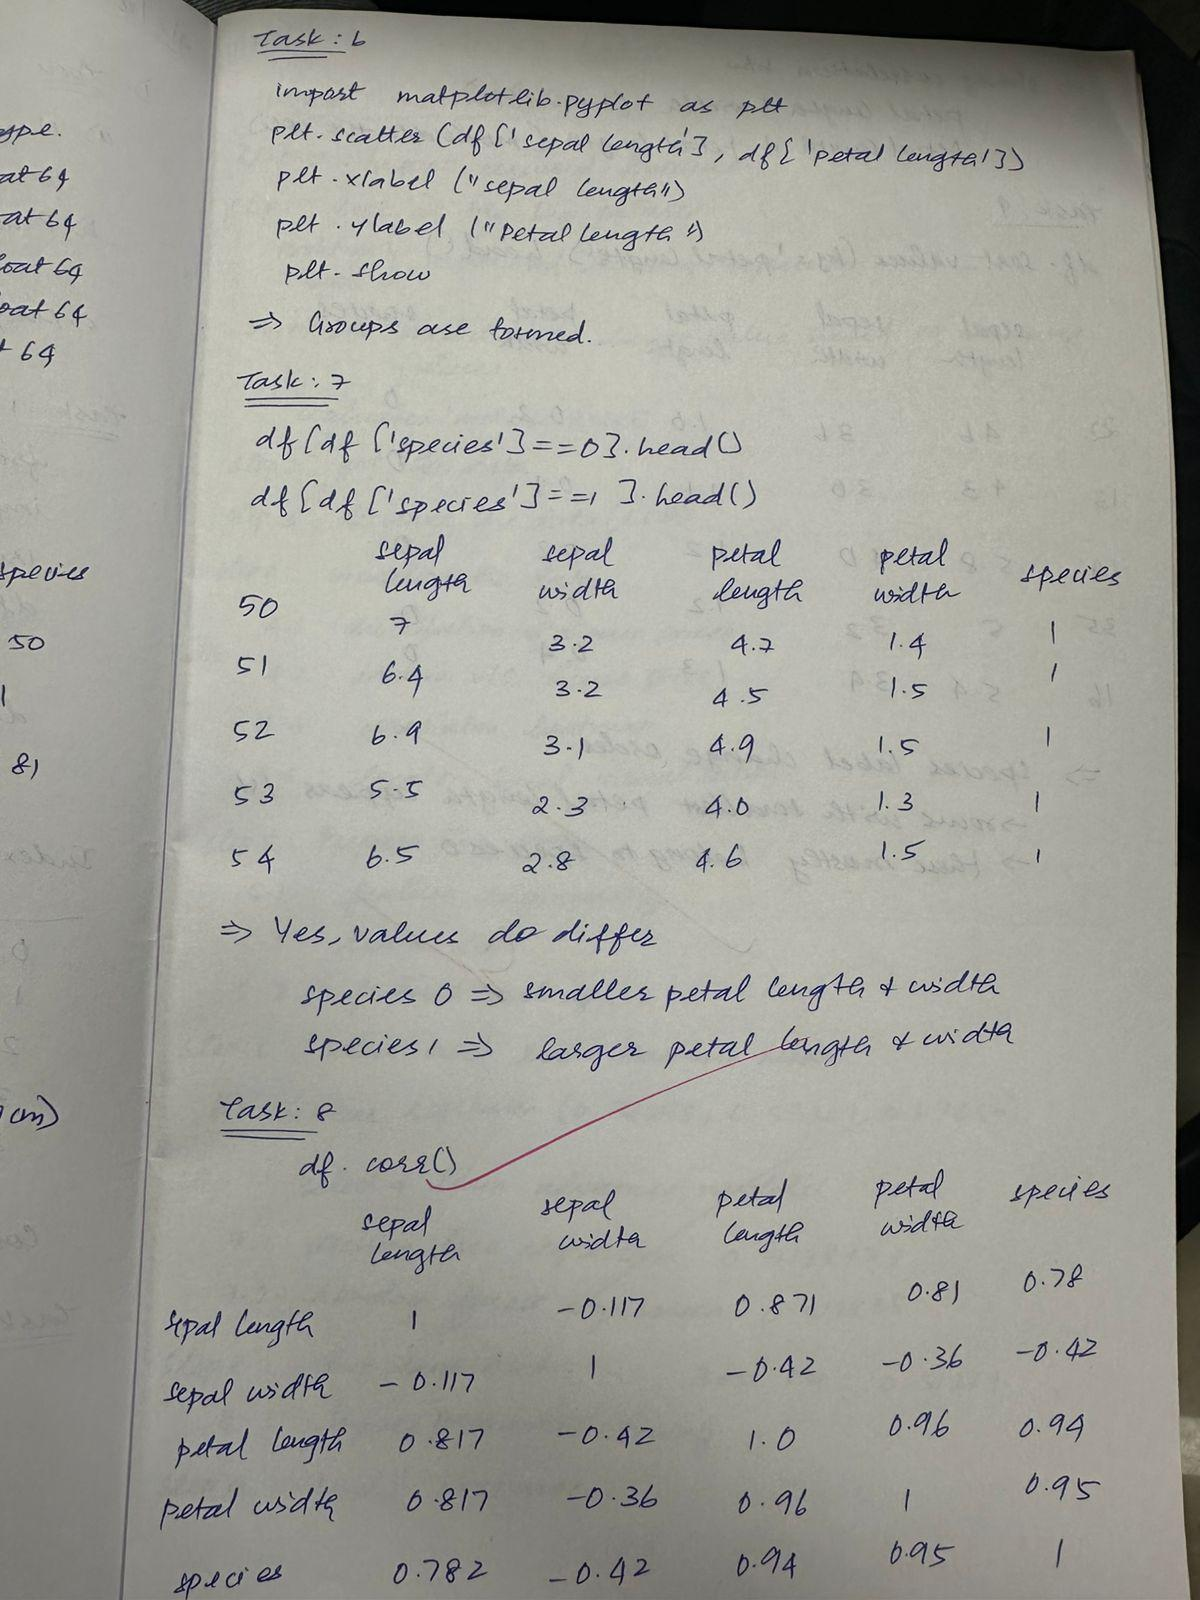 ype.
at 64
oat 64
loat 64
oat 64
t 64
species
50
1
81
cm)
Task : 6
import matplotlib.pyplot as plt
plt.scatter (df['sepal length'], df['petal length'])
plt.xlabel ("sepal length")
plt.ylabel ("Petal length")
plt.show
=> Groups are formed.
Task : 7
df[df['species']==0].head()
df[df['species']==1].head()
sepal length sepal width petal length petal width species
50 7 3.2 4.7 1.4 1
51 6.4 3.2 4.5 1.5 1
52 6.9 3.1 4.9 1.5 1
53 5.5 2.3 4.0 1.3 1
54 6.5 2.8 4.6 1.5 1
=> Yes, values do differ
species 0 => smaller petal length & width
species 1 => larger petal length & width
Task : 8
df.corr()
sepal length sepal width petal length petal width species
sepal length 1 -0.117 0.871 0.81 0.78
sepal width -0.117 1 -0.42 -0.36 -0.42
petal length 0.817 -0.42 1.0 0.96 0.94
petal width 0.817 -0.36 0.96 1 0.95
species 0.782 -0.42 0.94 0.95 1